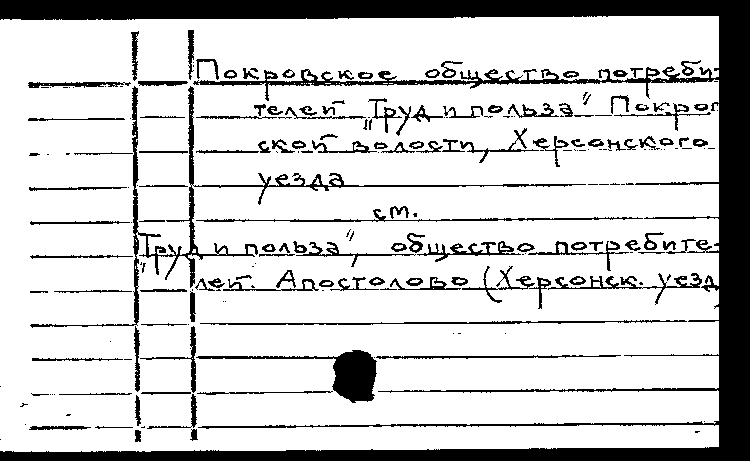 Покровское общество потреби-
телей „Труд и польза" Покров
ской волости, Херсонского
уезда
см.
„Труд и польза", общество потребите-
лей. Апостолово (Херсонск. уезд